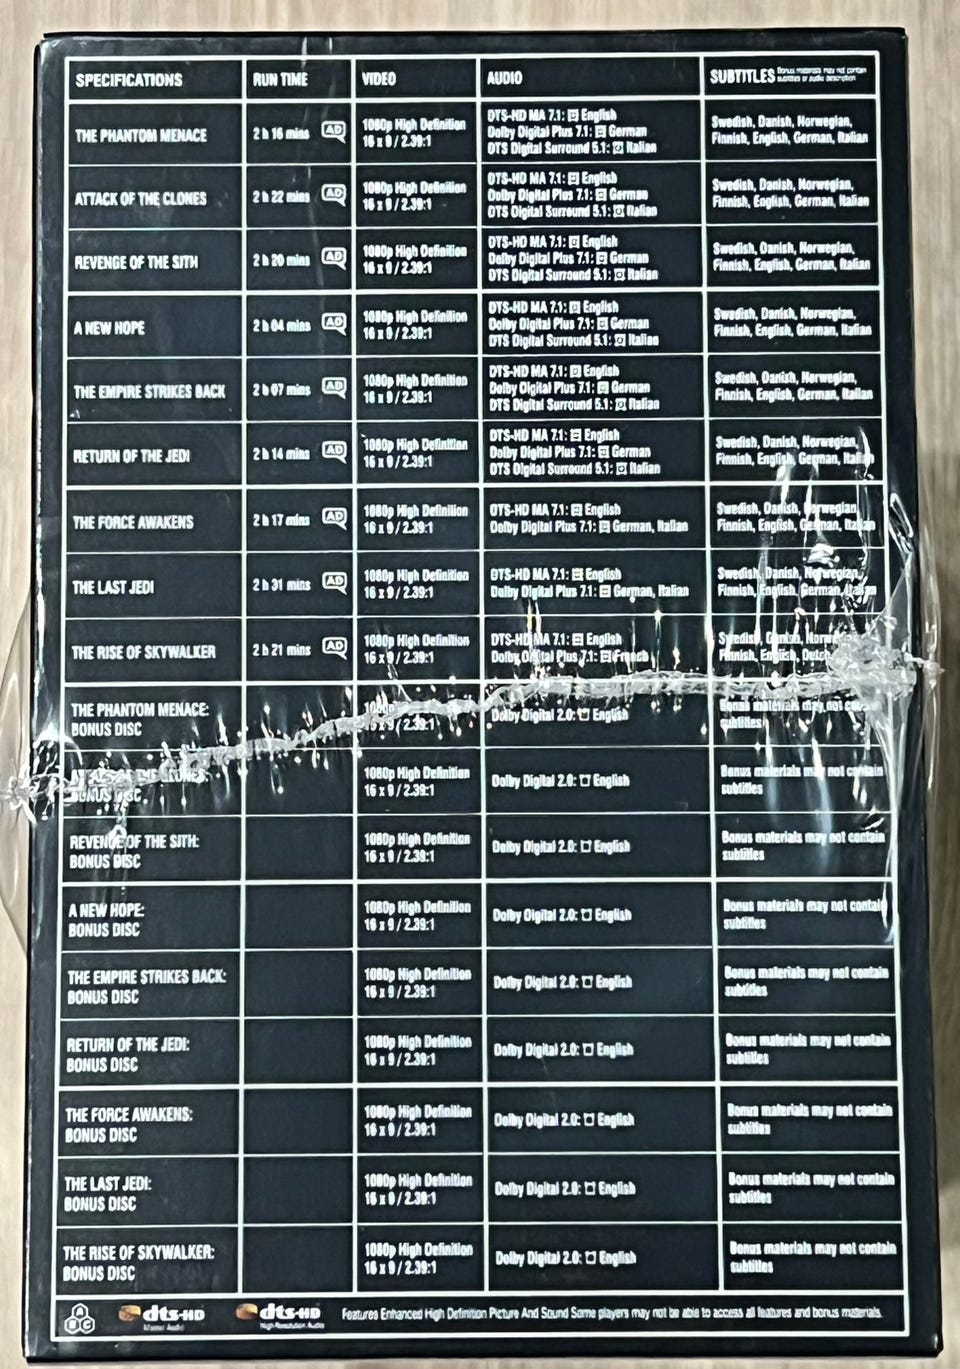 SPECIFICATIONS
RUN TIME
VIDEO
AUDIO
SUBTITLES
Bonus materials may not contain
subtitles or audio description
THE PHANTOM MENACE
2 h 16 mins
AD
1080p High Definition
16 x 9 / 2.39:1
DTS-HD MA 7.1: English
Dolby Digital Plus 7.1: German
DTS Digital Surround 5.1: Italian
Swedish, Danish, Norwegian,
Finnish, English, German, Italian
ATTACK OF THE CLONES
2 h 22 mins
AD
1080p High Definition
16 x 9 / 2.39:1
DTS-HD MA 7.1: English
Dolby Digital Plus 7.1: German
DTS Digital Surround 5.1: Italian
Swedish, Danish, Norwegian,
Finnish, English, German, Italian
REVENGE OF THE SITH
2 h 20 mins
AD
1080p High Definition
16 x 9 / 2.39:1
DTS-HD MA 7.1: English
Dolby Digital Plus 7.1: German
DTS Digital Surround 5.1: Italian
Swedish, Danish, Norwegian,
Finnish, English, German, Italian
A NEW HOPE
2 h 04 mins
AD
1080p High Definition
16 x 9 / 2.39:1
DTS-HD MA 7.1: English
Dolby Digital Plus 7.1: German
DTS Digital Surround 5.1: Italian
Swedish, Danish, Norwegian,
Finnish, English, German, Italian
THE EMPIRE STRIKES BACK
2 h 07 mins
AD
1080p High Definition
16 x 9 / 2.39:1
DTS-HD MA 7.1: English
Dolby Digital Plus 7.1: German
DTS Digital Surround 5.1: Italian
Swedish, Danish, Norwegian,
Finnish, English, German, Italian
RETURN OF THE JEDI
2 h 14 mins
AD
1080p High Definition
16 x 9 / 2.39:1
DTS-HD MA 7.1: English
Dolby Digital Plus 7.1: German
DTS Digital Surround 5.1: Italian
Swedish, Danish, Norwegian,
Finnish, English, German, Italian
THE FORCE AWAKENS
2 h 17 mins
AD
1080p High Definition
16 x 9 / 2.39:1
DTS-HD MA 7.1: English
Dolby Digital Plus 7.1: German, Italian
Swedish, Danish, Norwegian,
Finnish, English, German, Italian
THE LAST JEDI
2 h 31 mins
AD
1080p High Definition
16 x 9 / 2.39:1
DTS-HD MA 7.1: English
Dolby Digital Plus 7.1: German, Italian
Swedish, Danish, Norwegian,
Finnish, English, German, Italian
THE RISE OF SKYWALKER
2 h 21 mins
AD
1080p High Definition
16 x 9 / 2.39:1
DTS-HD MA 7.1: English
Dolby Digital Plus 7.1: French
Swedish, Danish,
Finnish, English, Dutch
THE PHANTOM MENACE:
BONUS DISC
1080p
16 x 9 / 2.39:1
Dolby Digital 2.0: English
Bonus materials may not
subtitles
BONUS DISC
1080p High Definition
16 x 9 / 2.39:1
Dolby Digital 2.0: English
Bonus materials may not contain
subtitles
REVENGE OF THE SITH:
BONUS DISC
1080p High Definition
16 x 9 / 2.39:1
Dolby Digital 2.0: English
Bonus materials may not contain
subtitles
A NEW HOPE:
BONUS DISC
1080p High Definition
16 x 9 / 2.39:1
Dolby Digital 2.0: English
Bonus materials may not contain
subtitles
THE EMPIRE STRIKES BACK:
BONUS DISC
1080p High Definition
16 x 9 / 2.39:1
Dolby Digital 2.0: English
Bonus materials may not contain
subtitles
RETURN OF THE JEDI:
BONUS DISC
1080p High Definition
16 x 9 / 2.39:1
Dolby Digital 2.0: English
Bonus materials may not contain
subtitles
THE FORCE AWAKENS:
BONUS DISC
1080p High Definition
16 x 9 / 2.39:1
Dolby Digital 2.0: English
Bonus materials may not contain
subtitles
THE LAST JEDI:
BONUS DISC
1080p High Definition
16 x 9 / 2.39:1
Dolby Digital 2.0: English
Bonus materials may not contain
subtitles
THE RISE OF SKYWALKER:
BONUS DISC
1080p High Definition
16 x 9 / 2.39:1
Dolby Digital 2.0: English
Bonus materials may not contain
subtitles
A B C
dts-HD
Master Audio
dts-HD
High Resolution Audio
Features Enhanced High Definition Picture And Sound Some players may not be able to access all features and bonus materials.